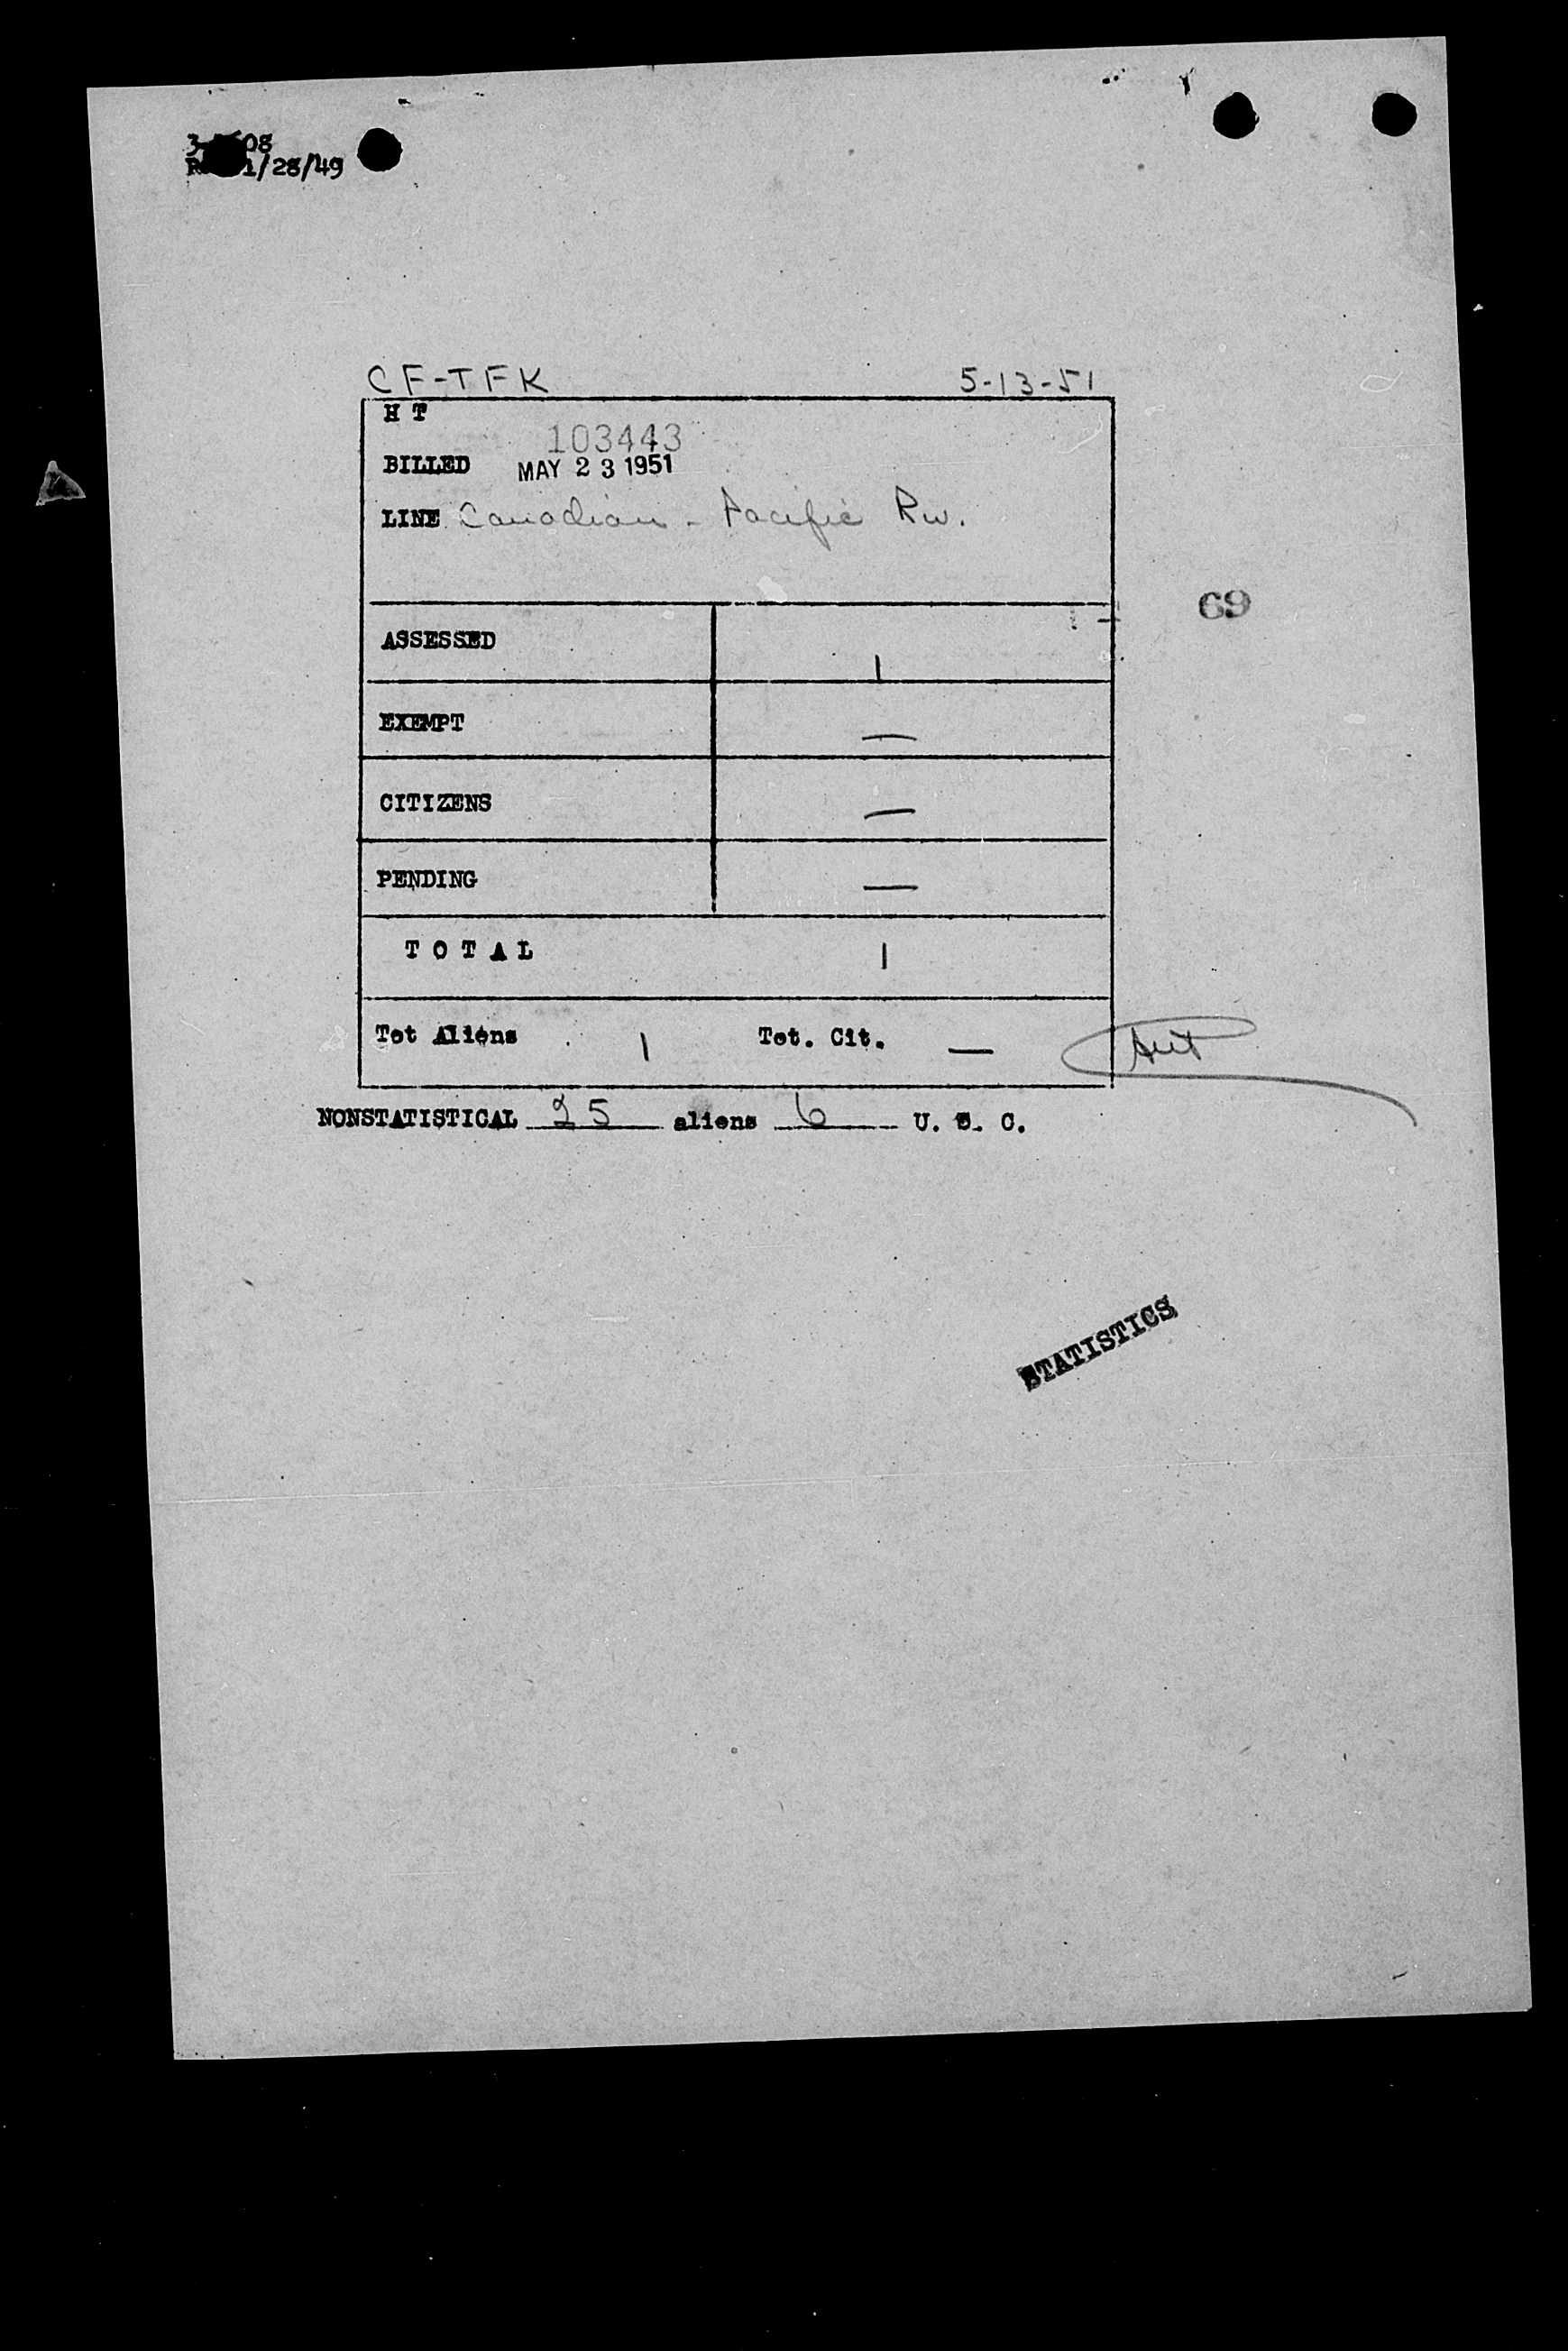 08
1/28/49
CF-TFK 5-13-51
H T
103443
BILLED MAY 23 1951
LINE Canadian - Pacific Rw.
69
ASSESSED 1
EXEMPT —
CITIZENS —
PENDING —
TOTAL 1
Tot Aliens 1 Tot. Cit. —
NONSTATISTICAL 25 aliens 6 U. S. C.
STATISTICS